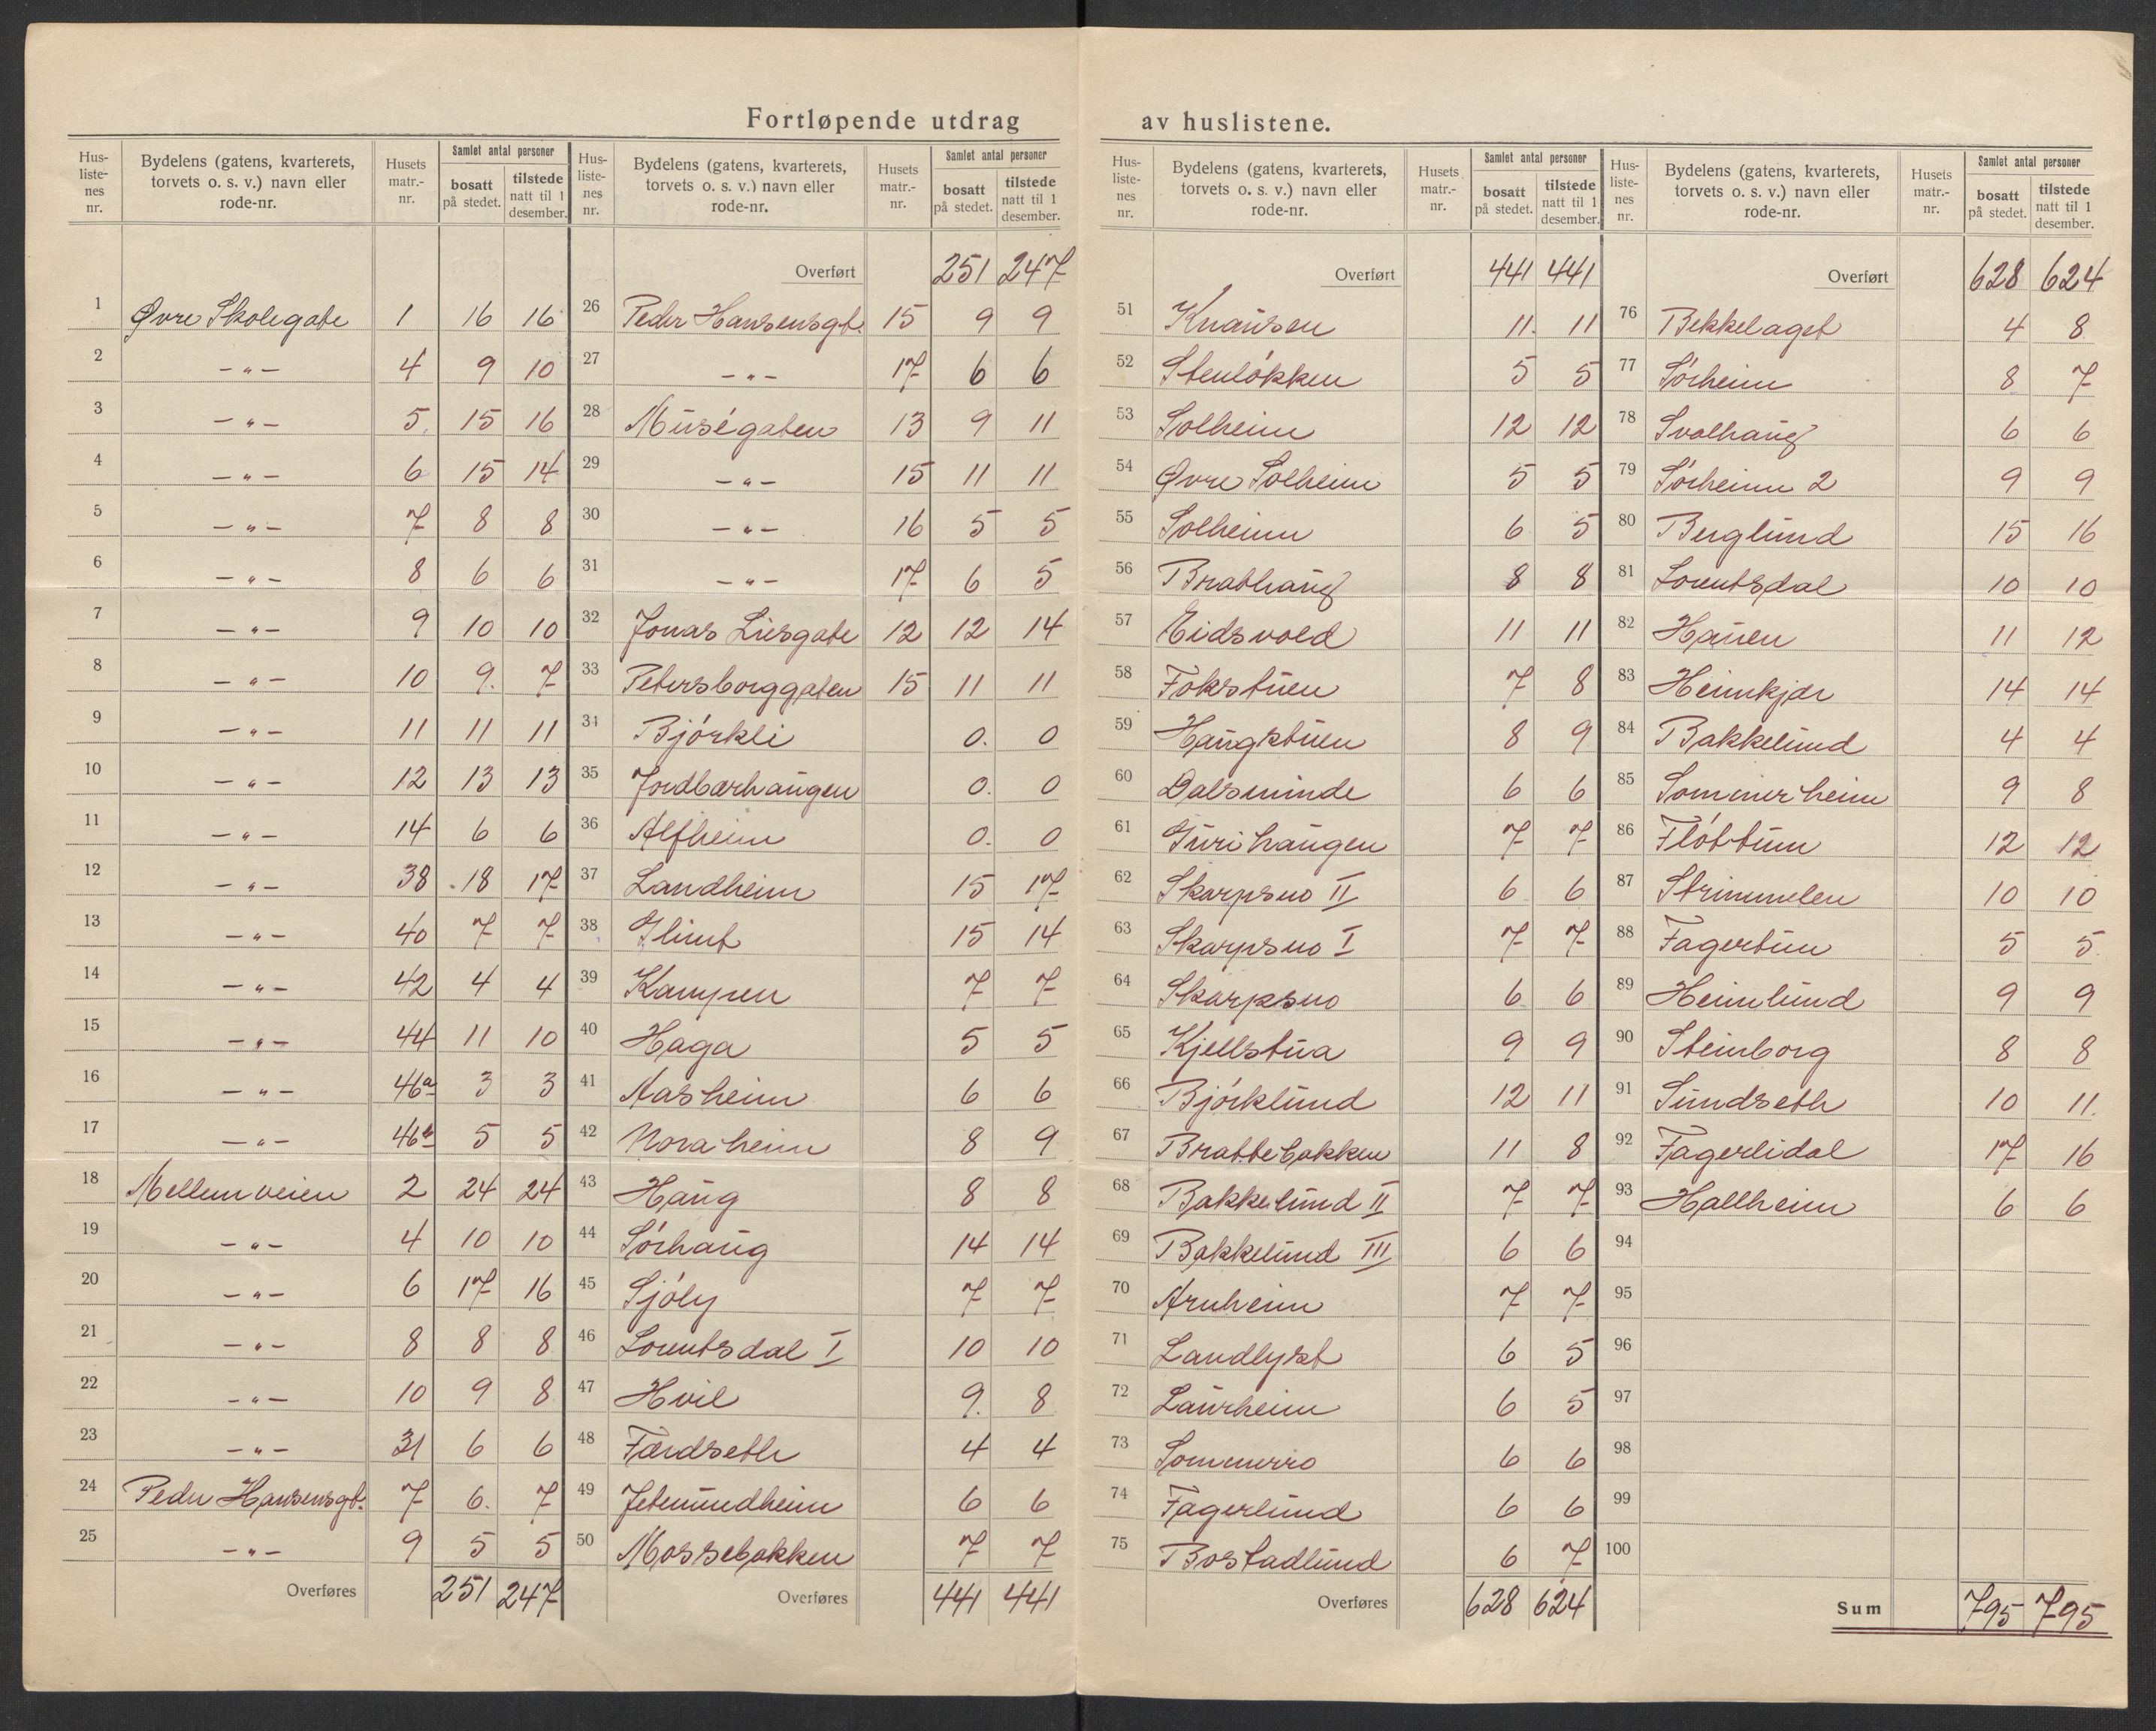 Fortløpende utdrag av huslistene.
Hus-listenes nr. | Bydelens (gatens, kvarterets, torvets o. s. v.) navn eller rode-nr. | Husets matr.-nr. | Samlet antal personer bosatt på stedet. | tilstede natt til 1 desember.
1 Øvre Skolegate 1 16 16
2 -"- 4 9 10
3 -"- 5 15 16
4 -"- 6 15 14
5 -"- 7 8 8
6 -"- 8 6 6
7 -"- 9 10 10
8 -"- 10 9. 7
9 -"- 11 11 11
10 -"- 12 13 13
11 -"- 14 6 6
12 -"- 38 18 17
13 -"- 40 7 7
14 -"- 42 4 4
15 -"- 44 11 10
16 -"- 46a 3 3
17 -"- 46b 5 5
18 Mellemveien 2 24 24
19 -"- 4 10 10
20 -"- 6 17 16
21 -"- 8 8 8
22 -"- 10 9 8
23 -"- 31 6 6
24 Peder Hansensgt. 7 6. 7
25 -"- 9 5 5
Overføres 251 247
Hus-listenes nr. | Bydelens (gatens, kvarterets, torvets o. s. v.) navn eller rode-nr. | Husets matr.-nr. | Samlet antal personer bosatt på stedet. | tilstede natt til 1 desember.
Overført 251 247
26 Peder Hansensgt. 15 9 9
27 -"- 17 6 6
28 Muségaten 13 9 11
29 -"- 15 11 11
30 -"- 16 5 5
31 -"- 17 6 5
32 Jonas Liesgate 12 12 14
33 Petersborggaten 15 11 11
34 Bjórkli 0. 0
35 Jordbærhaugen 0. 0
36 Alfheim 0. 0
37 Landheim 15 17
38 Glimt 15 14
39 Kampen 7 7
40 Haga 5 5
41 Aasheim 6 6
42 Noraheim 8 9
43 Haug 8 8
44 Sórhaug 14 14
45 Sjóly 7 7
46 Lorentsdal I 10 10
47 Hvil 9. 8
48 Færdseth 4 4
49 Jetmundheim 6 6
50 Mossebakken 7 7
Overføres 441 441
Hus-listenes nr. | Bydelens (gatens, kvarterets, torvets o. s. v.) navn eller rode-nr. | Husets matr.-nr. | Samlet antal personer bosatt på stedet. | tilstede natt til 1 desember.
Overført 441 441
51 Knausen 11. 11
52 Stenlókken 5 5
53 Solheim 12 12
54 Øvre Solheim 5 5
55 Solheim 6 5
56 Brathaug 8 8
57 Eidsvold 11 11
58 Fokstuen 7 8
59 Haugstuen 8 9
60 Dalsminde 6 6
61 Gurihaugen 7 7
62 Skarpsno II 6 6
63 Skarpsno I 7 7
64 Skarpsno 6 6
65 Kjellstua 9 9
66 Bjórklund 12 11
67 Brattebakken 11 8
68 Bakkelund II 7 7
69 Bakkelund III 6 6
70 Arnheim 7 7
71 Landlyst 6 5
72 Laurheim 6 5
73 Sommerro 6 6
74 Fagerlund 6 6
75 Bostadlund 6 7
Overføres 628 624
Hus-listenes nr. | Bydelens (gatens, kvarterets, torvets o. s. v.) navn eller rode-nr. | Husets matr.-nr. | Samlet antal personer bosatt på stedet. | tilstede natt til 1 desember.
Overført 628 624
76 Bekkelaget 4 8
77 Sórheim 8 7
78 Svalhaug 6 6
79 Sórheim 2 9 9
80 Berglund 15 16
81 Lorentsdal 10 10
82 Hauen 11 12
83 Heimkjær 14 14
84 Bakkelund 4 4
85 Sommerheim 9 8
86 Flóttum 12 12
87 Strimmelen 10 10
88 Fagertun 5 5
89 Heimlund 9 9
90 Steinborg 8 8
91 Sundseth 10 11.
92 Fagerlidal 17 16
93 Hallheim 6 6
94
95
96
97
98
99
100
Sum 795 795